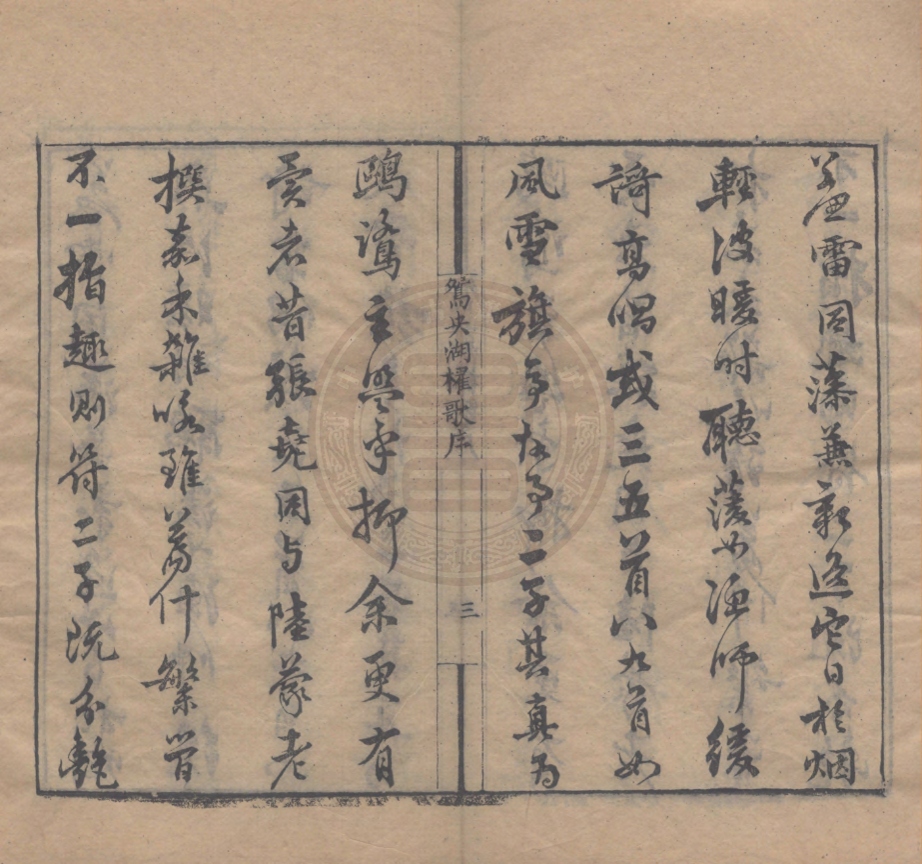 雷同藻兼新逸它日於烟
輕波暖时聽菱女漁師緩
謌高唱或三五首八九首如
風雪旗亭故事二子其真為
鴛央湖櫂歌序
三
鷗鷺主盟乎抑余更有
異者昔張堯同与陸蒙老
撰嘉禾雜咏雖篇什繁簡
不一指趣則符二子既分